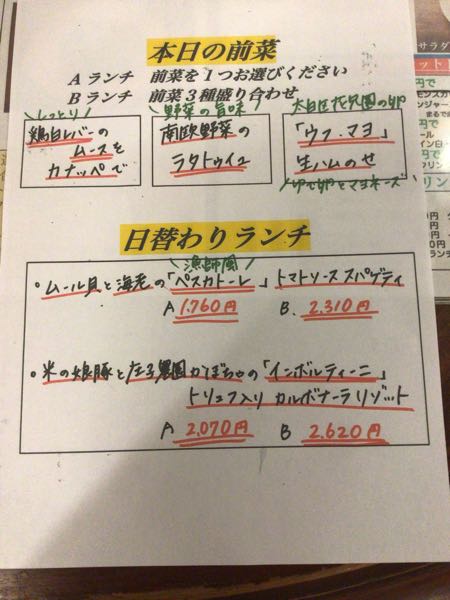 本日の前菜
Aランチ 前菜を1つお選びください
Bランチ 前菜3種盛り合わせ
\しっとり/
鶏白レバーの
ムースを
カナッペで
野菜の旨味
南欧野菜の
ラタトゥイユ
「ウフ・マヨ」
生ハムのせ
ゆで卵とマヨネーズ
日替わりランチ
\漁師風/
・ムール貝と海老の「ペスカトーレ」トマトソーススパゲティ
A 1,760円 B. 2,310円
・米の娘豚と庄子農園かぼちゃの「インボルティーニ」
トリュフ入りカルボナーラリゾット
A 2,070円 B 2,620円
サラダ